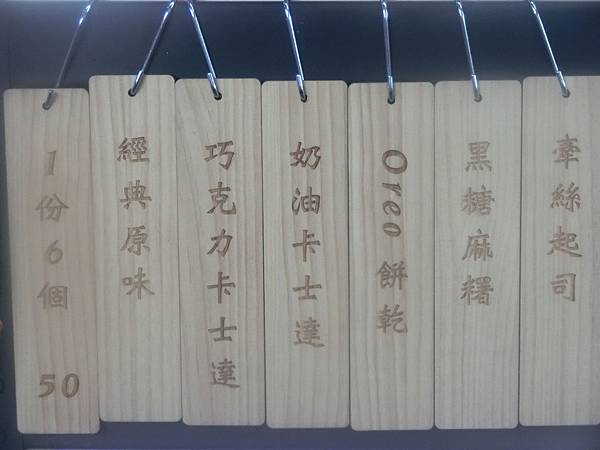 1份6個 50
經典原味
巧克力卡士達
奶油卡士達
Oreo餅乾
黑糖麻糬
牽絲起司